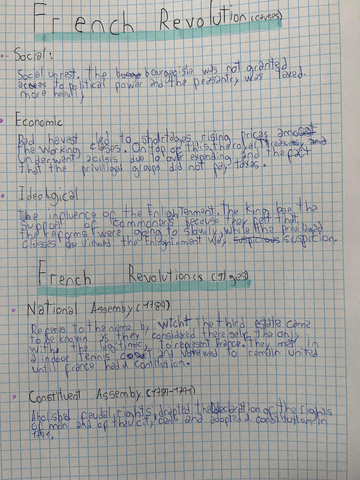 French Revolution (causes)
Social:
Social unrest. the bourgoisie was not granted
acess to political power and the peasants, was taxed.
more heavily
Economic
Bad havest led to shortages rising prices amongst
the working classes. On top of this, the royal treasury
underwent acrisis due to over expending and the fact
that the priviliged groups did not pay taxes.
Ideological
The influence of the Enlightenment. The king lose the
support of commoners because they felt that
the reforms were going to slowly, while the priviliged
classes viewed the Enlightenment with suspicion.
French Revolution
National Assembly (1789)
Referes to the name by witcht the third estate came
to be known as they considered themselves the only
with the legitimacy to represent france. They met in
a indoor tennis court and vowed to remain united
until france had a contitution.
Constituent Assembly (1789-1791)
Abolished feudal, rights, drapted the declaration of the rights
of man and of the citizens and adopted a constitution in
1791.